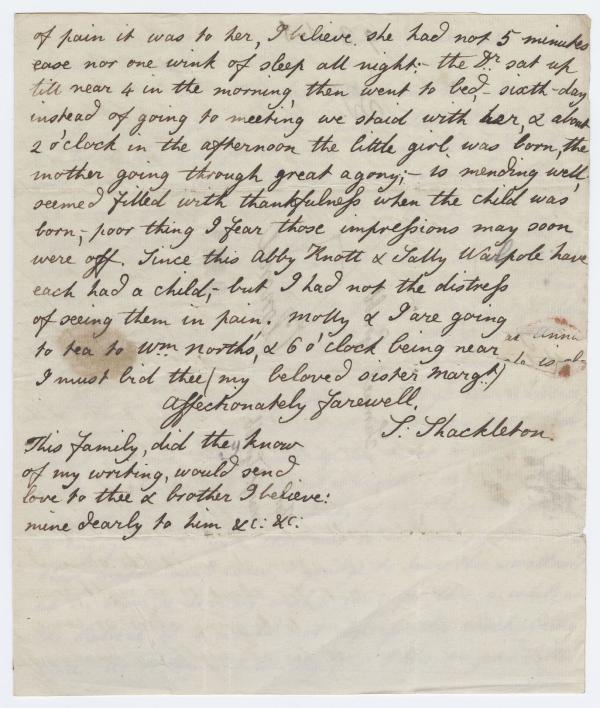 of pain it was to her, I believe she had not 5 minutes
ease nor one wink of sleep all night:- the Dr. sat up
till near 4 in the morning then went to bed,- sixth-day
instead of going to meeting we staid with her, & about
2 o'clock in the afternoon the little girl was born, the
mother going through great agony;- is mending well,
seemed filled with thankfulness when the child was
born,- poor thing I fear those impressions may soon
were off. Since this Abby Knott & Sally Walpole have
each had a child,- but I had not the distress
of seeing them in pain. Molly & I are going
to tea to Wm. North's, & 6 o'clock being near
I must bid thee (my beloved sister Margt.)
affectionately farewell.
S: Shackleton.
This family, did the know
of my writing, would send
love to thee & brother I believe:
mine dearly to him &c: &c:
Anna
is